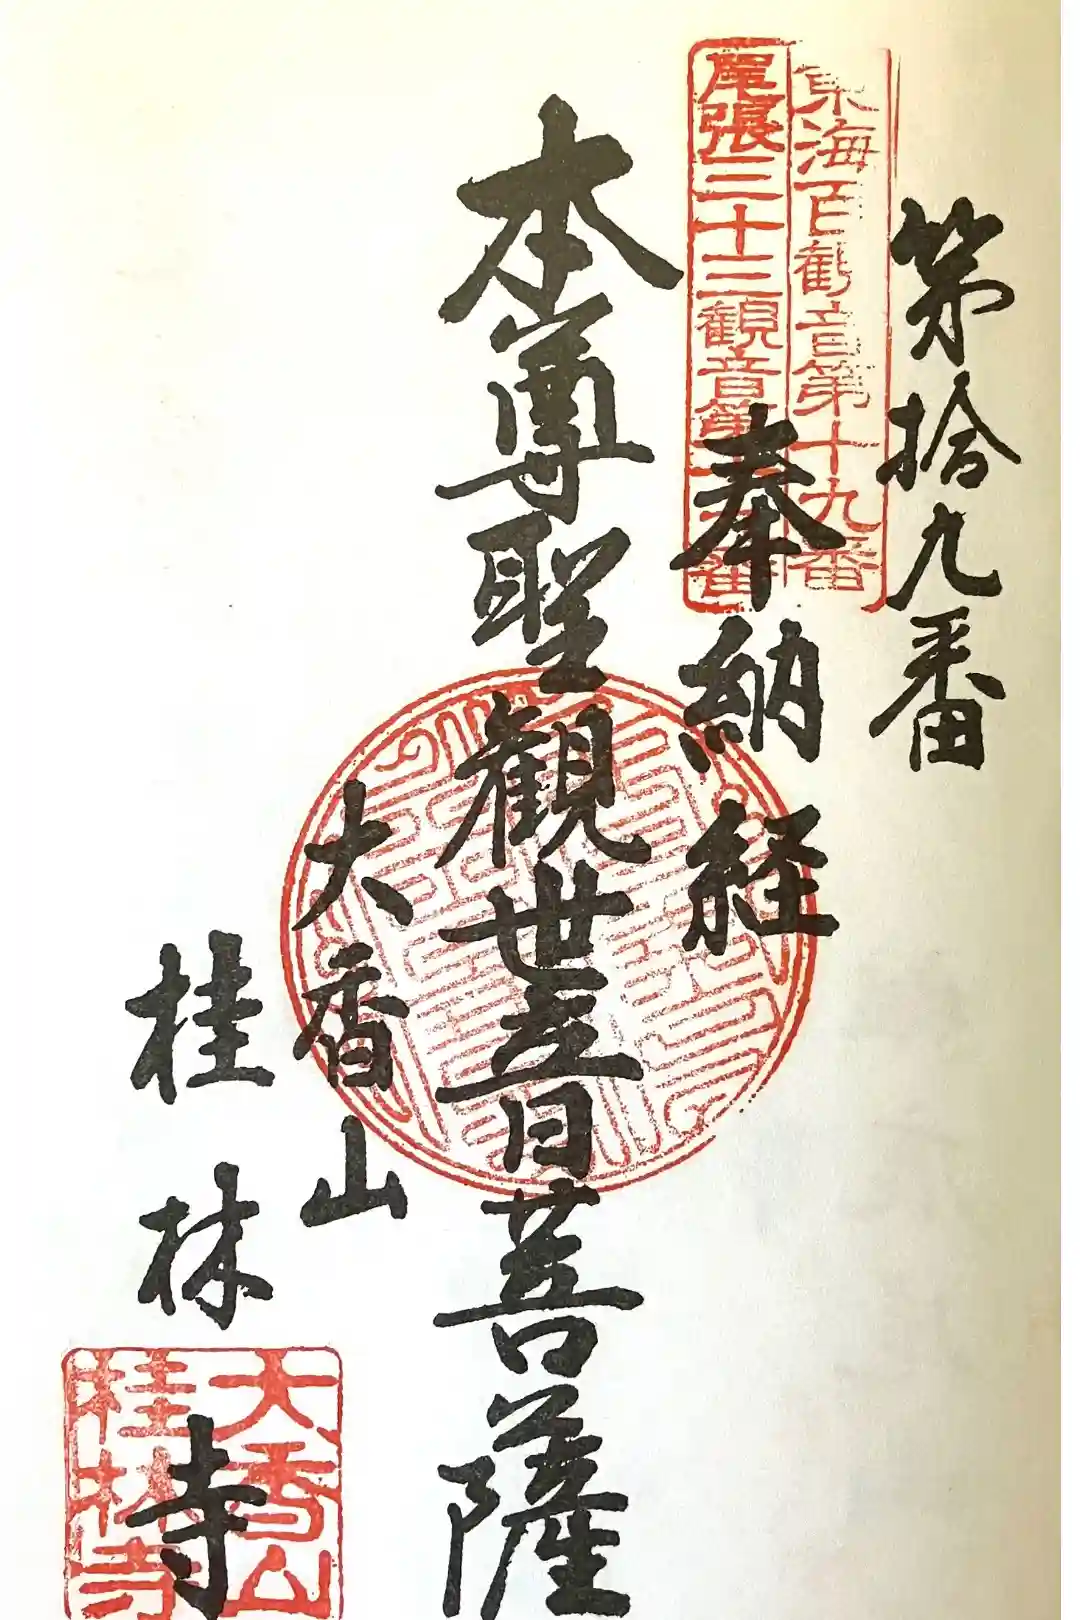 第拾九番
東海百観音第十九番
尾張三十三観音第十
番
奉納経
本尊聖観世音菩薩
大香山
桂林寺
大香山
桂林寺